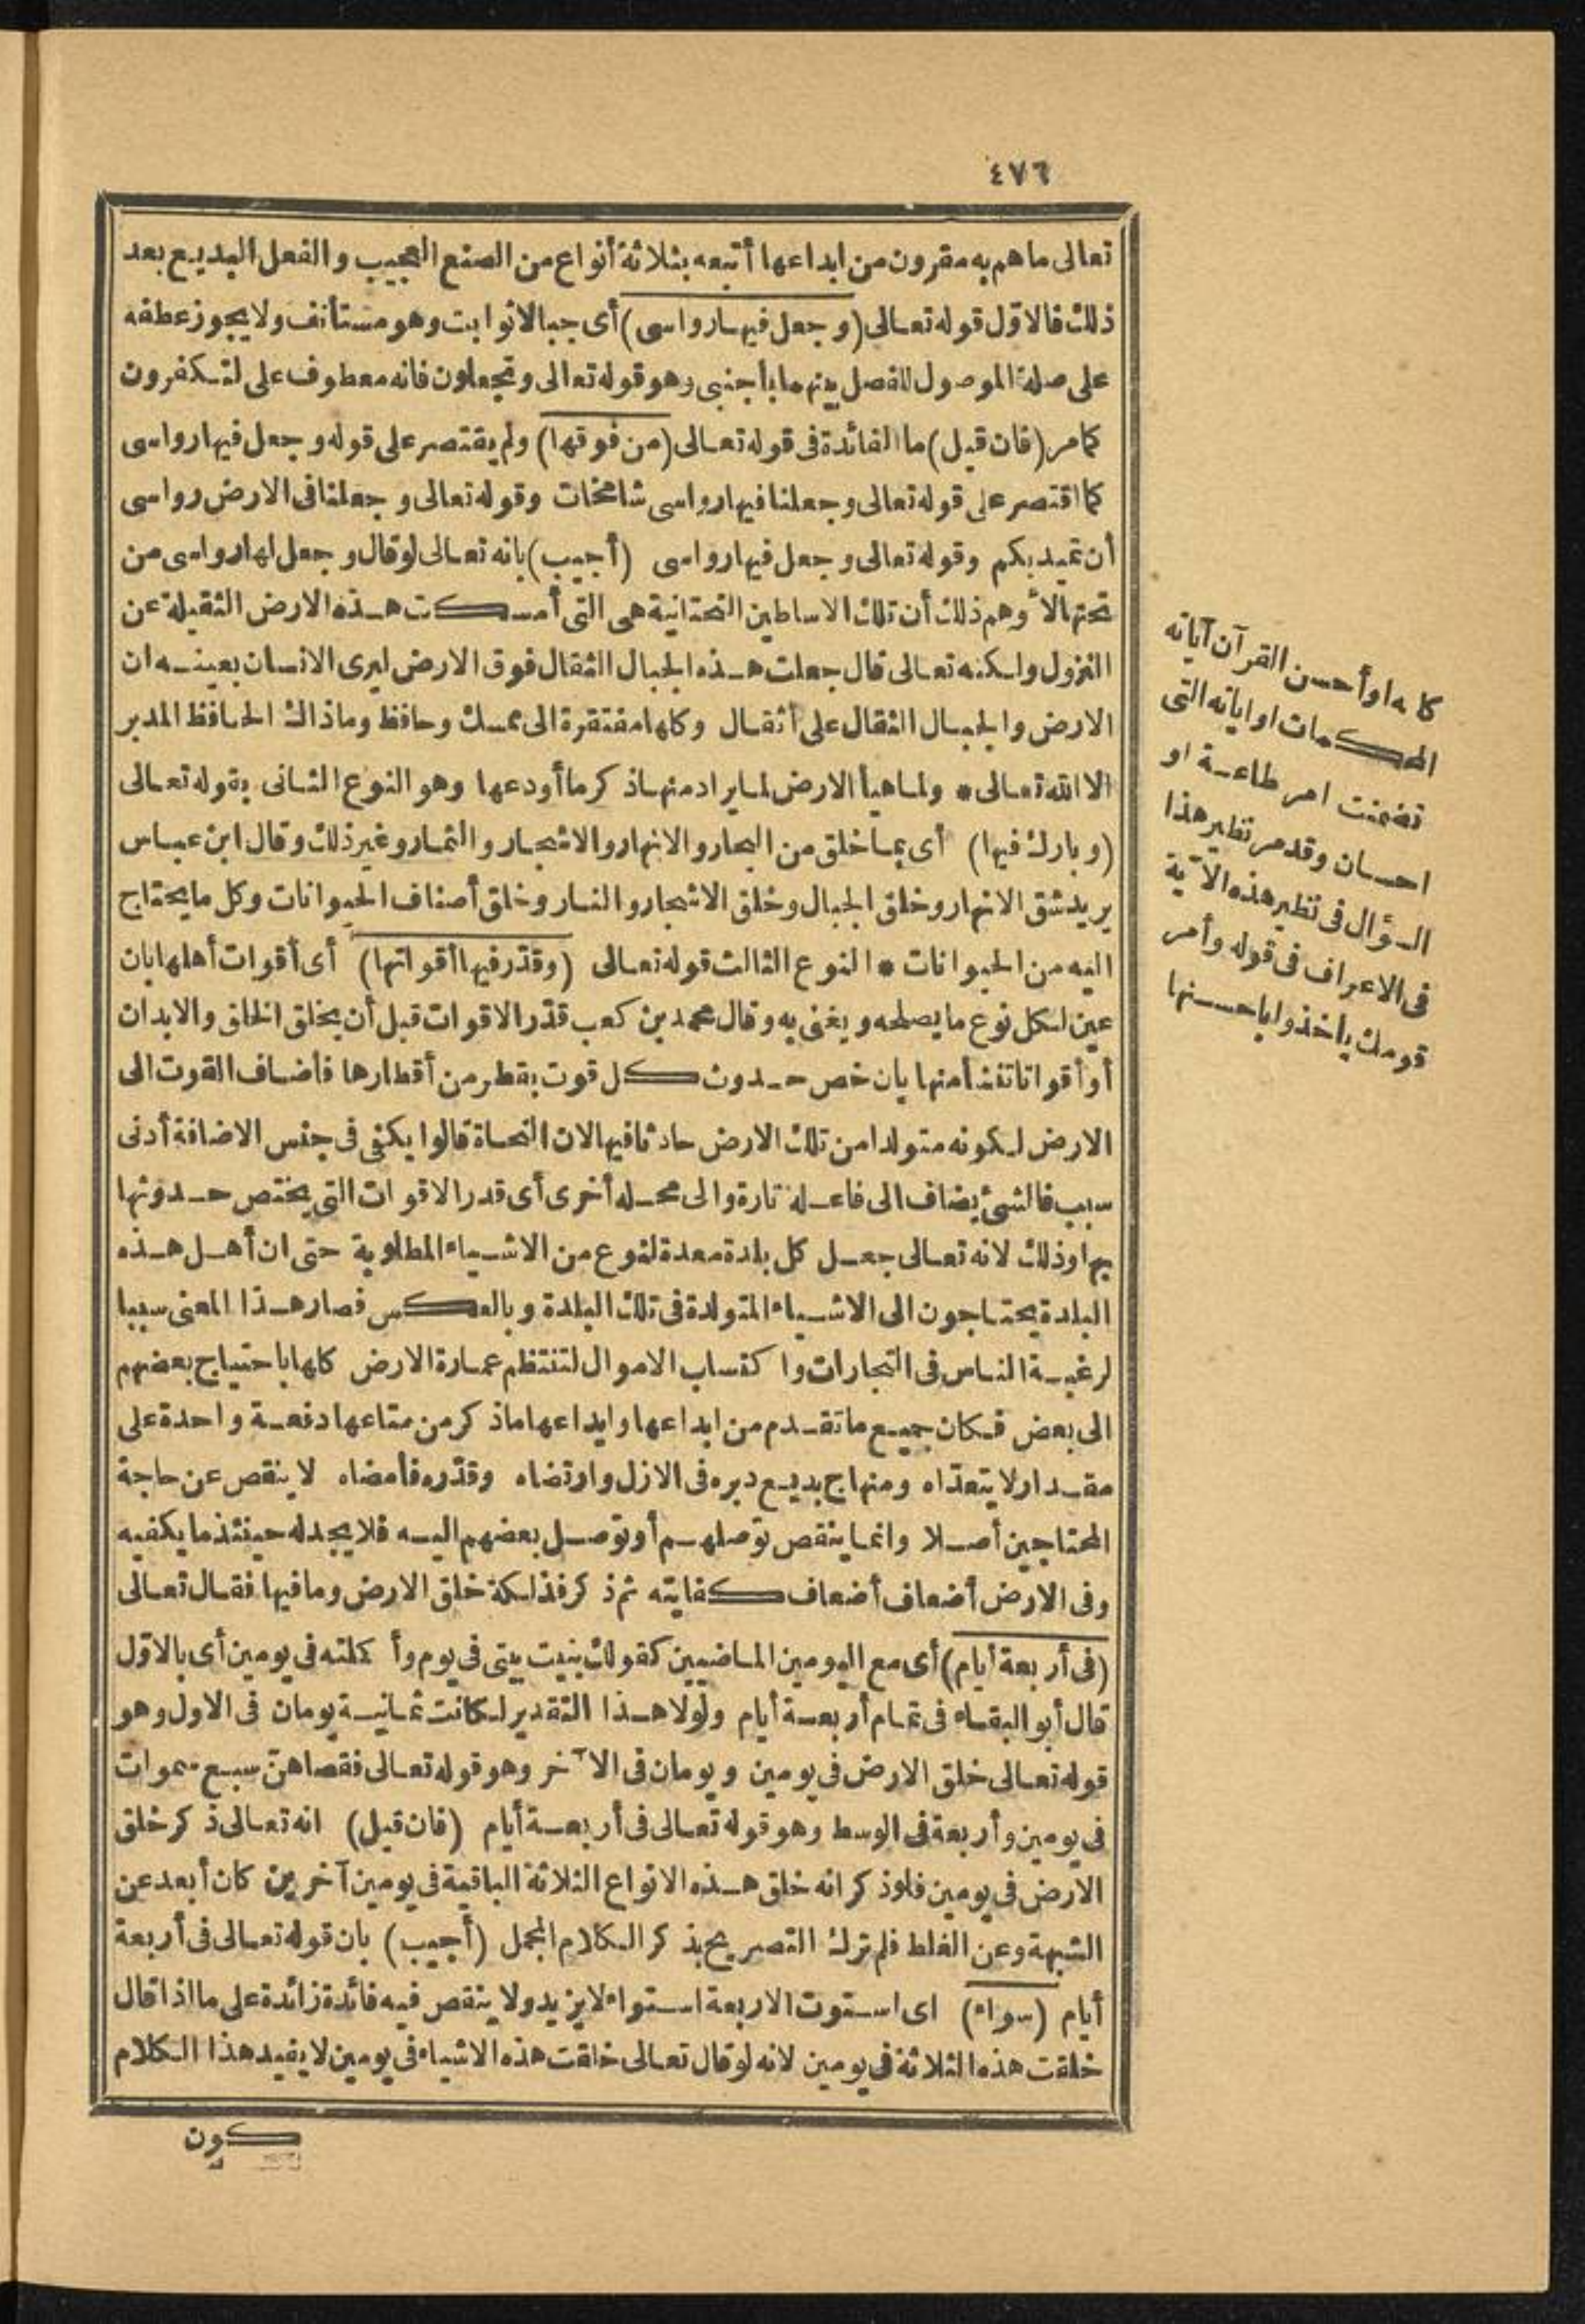 ٤٧٦
تعالى ماهم به مقرون من ابداعها أتبعه بثلاثة أنواع من الصنع العجيب والفعل البديع بعد
ذلك فالاوّل قوله تعالى (وجعل فيها رواسى) أى جبالا ثوابت وهو مستأنف ولا يجوز عطفه
على صلة الموصول للفصل بينهما بأجنبى وهو قوله تعالى وتجعلون فانه معطوف على لتكفرون
كامر (فان قيل) ما الفائدة فى قوله تعالى (من فوقها) ولم يقتصر على قوله وجعل فيها رواسى
كما اقتصر على قوله تعالى وجعلنا فيها رواسى شامخات وقوله تعالى وجعلنا فى الارض رواسى
أن تميد بكم وقوله تعالى وجعل فيها رواسى (أجيب) بانه تعالى لو قال وجعل لها رواسى من
تحتها لا ٔوهم ذلك أن تلك الاساطين التحتانية هى التى أمسكت هذه الارض الثقيلة عن
النزول ولكنه تعالى قال جعلت هذه الجبال الثقال فوق الارض ليرى الانسان بعينه ان
الارض والجبال الثقال على أثقال وكلها مفتقرة الى ممسك وحافظ وماذاك الحافظ المدبر
الا الله تعالى * ولما هيأ الارض لما يراد منها ذكر ما أودعها وهو النوع الثانى بقوله تعالى
(وبارك فيها) أى بما خلق من البحار والانهار والاشجار والثمار وغير ذلك وقال ابن عباس
يريد شق الانهار وخلق الجبال وخلق الاشجار والثمار وخلق أصناف الحيوانات وكل ما يحتاج
اليه من الحيوانات * النوع الثالث قوله تعالى (وقدّر فيها أقواتها) أى أقوات أهلها بان
عين لكل نوع ما يصلحه ويغنى به وقال محمد بن كعب قدّر الاقوات قبل أن يخلق الخلق والابدان
أو أقواتا تنشأ منها بان خص حدوث كل قوت بقطر من أقطارها فأضاف القوت الى
الارض لكونه متولدا من تلك الارض حادثا فيها لان النحاة قالوا يكفى فى جنس الاضافة أدنى
سبب فالشئ يضاف الى فاعله تارة والى محله أخرى أى قدر الاقوات التى يختص حدوثها
بها وذلك لانه تعالى جعل كل بلدة معدة لنوع من الاشياء المطلوبة حتى ان أهل هذه
البلدة يحتاجون الى الاشياء المتولدة فى تلك البلدة وبالعكس فصار هذا المعنى سببا
لرغبة الناس فى التجارات واكتساب الاموال لتنتظم عمارة الارض كلها باحتياج بعضهم
الى بعض فكان جميع ما تقدم من ابداعها وايداعها ماذكر من متاعها دفعة واحدة على
مقدار لا يتعدّاه ومنهاج بديع دبره فى الازل وارتضاه وقدّره فأمضاه لا ينقص عن حاجة
المحتاجين أصلا وانما ينقص توصلهم أو توصل بعضهم اليه فلا يجد له حينئذ ما يكفيه
وفى الارض أضعاف أضعاف كفايته ثم ذكر فذلكة خلق الارض وما فيها فقال تعالى
(فى أربعة أيام) أى مع اليومين الماضيين كقولك بنيت بيتى فى يوم وأكملته فى يومين أى بالاوّل
قال أبو البقاء فى تمام أربعة أيام ولولا هذا التقدير لكانت ثمانية يومان فى الاول وهو
قوله تعالى خلق الارض فى يومين ويومان فى الآخر وهو قوله تعالى فقضاهنّ سبع سموات
فى يومين وأربعة فى الوسط وهو قوله تعالى فى أربعة أيام (فان قيل) انه تعالى ذكر خلق
الارض فى يومين فلو ذكر انه خلق هذه الانواع الثلاثة الباقية فى يومين آخرين كان أبعد عن
الشبهة وعن الغلط فلم ترك التصريح بذكر الكلام المجمل (أجيب) بان قوله تعالى فى أربعة
أيام (سواء) اى استوت الاربعة استواء لا يزيد ولا ينقص فيه فائدة زائدة على ما اذا قال
خلقت هذه الثلاثة فى يومين لانه لو قال تعالى خلقت هذه الاشياء فى يومين لا يفيد هذا الكلام
كون
كله او أحسن القرآن آياته
المحكمات او اياته التى
تضمنت امر طاعة او
احسان وقدمر نظير هذا
السؤال فى نظير هذه الآية
فى الاعراف فى قوله وأمر
قومك يأخذوا باحسنها